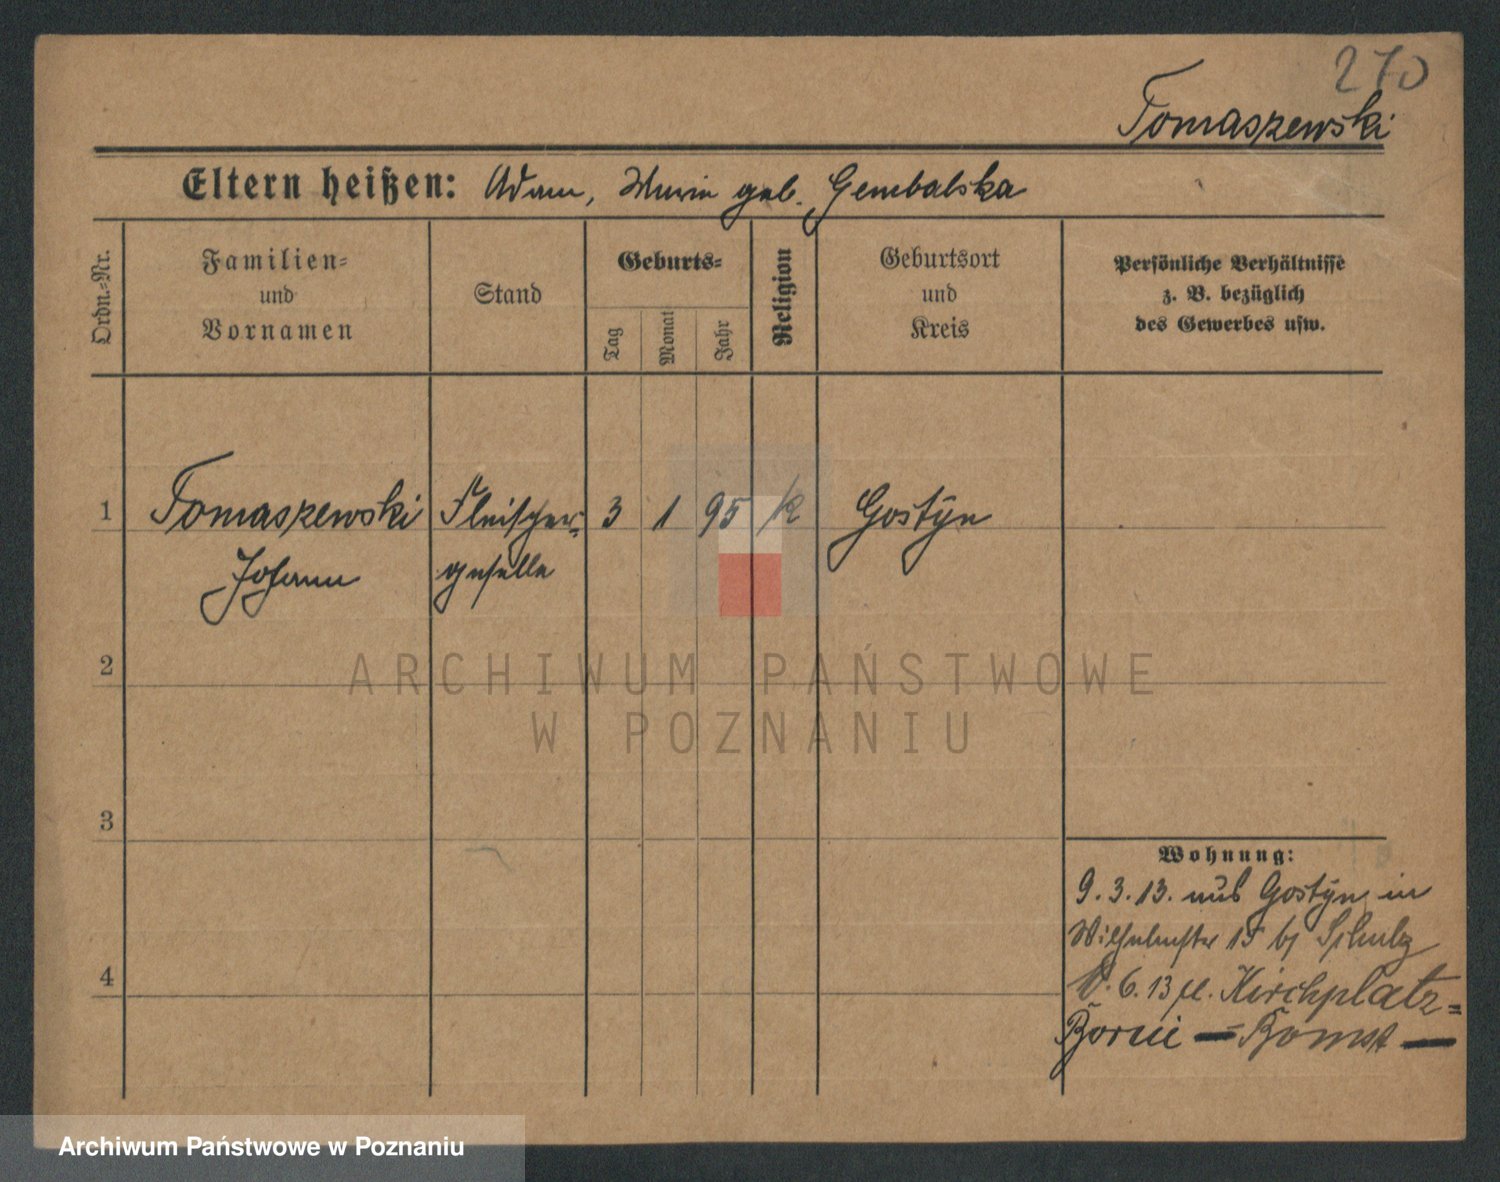 270
Tomaszewski
Eltern heißen: Adam, Maria geb. Gembalska
Ordn.-Nr.
Familien-
und
Vornamen
Stand
Geburts-
Tag
Monat
Jahr
Religion
Geburtsort
und
Kreis
Persönliche Verhältnisse
z. B. bezüglich
des Gewerbes usw.
1 Tomaszewski Fleischer- 3 1 95 k Gostyn
Johann geselle
2
ARCHIWUM PAŃSTWOWE
W POZNANIU
3
Wohnung:
9.3.13. aus Gostyn in
Wilhelmstr 15 bj Schulz
6.13 Kirchplatz-
Borui — Bomst —
4
Archiwum Państwowe w Poznaniu